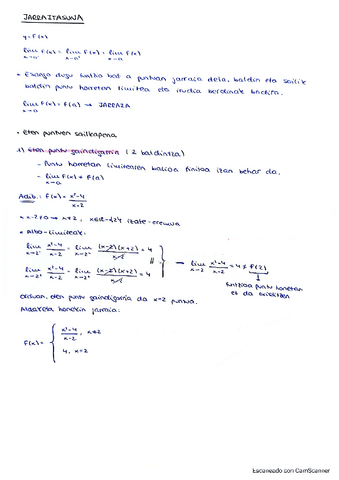 JARRAITASUNA
y=f(x)
lim f(x) = lim f(x) = lim f(x)
x→a⁻ x→a⁺ x→a
• Esango dugu funtzio bat a puntuan jarraia dela, baldin eta soilik
baldin puntu horretan limitea eta irudia berdinak badira.
lim f(x) = f(a) → JARRAIA
x→a
• Eten puntuen sailkapena
1) Eten puntu gaindigarria (2 baldintza)
- Puntu horretan limitearen balioa finitoa izan behar da.
- lim f(x) ≠ f(a)
x→a
Adib.: f(x) = x²-4
x-2
x-2≠0 → x≠2, izate-eremua
• Albo-limiteak:
lim x²-4 = lim (x-2)(x+2) = 4
x→2⁻ x-2 x→2⁻ x-2
lim x²-4 = lim (x-2)(x+2) = 4
x→2⁺ x-2 x→2⁺ x-2
→ lim x²-4 = 4 ≠ f(2)
x→2 x-2
funtzioa puntu honetan
ez da existitzen
Orduan, eten puntu gaindigarria da x=2 puntua.
honekin jarraia:
f(x) = { x²-4, x≠2
x-2
4, x=2
Escaneado con CamScanner